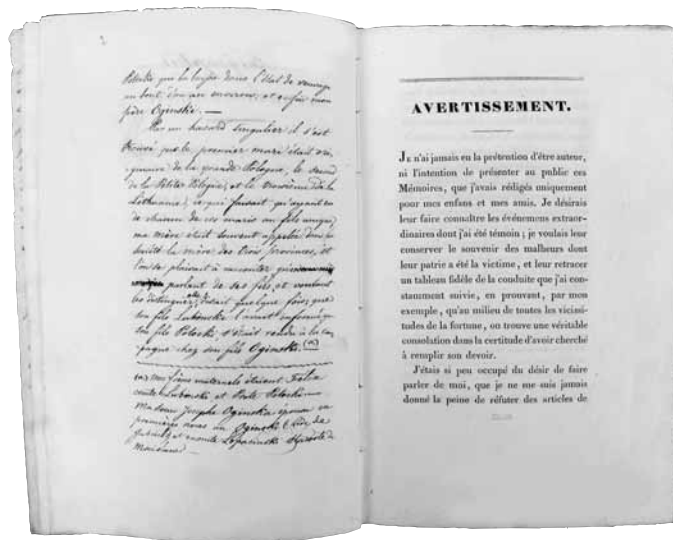 2
Potocki que la laissa dans l'état de veuvage
au bout d'un an environ, et enfin mon
père Oginski. —
Par un hazard singulier il s'est
trouvé que le premier mari était ori-
ginaire de la grande Pologne, le second
de la Petite Pologne, et le troisième de la
Lithuanie, ce qui faisait qu'ayant eu
de chacun de ces maris un fils unique,
ma mère était souvent appelée dans la
société la mère des trois provinces, et
l'on se plaisait à raconter que
parlant de ses fils, et voulant
les distinguer, elle disait quelque fois, que
son fils Lubienski l'avait informé que
son fils Potocki, s'était rendu à la cam-
pagne chez son fils Oginski. (a)
(a) mes frères maternels étaient Felix
comte Lubienski et Potocki —
Madame Josephe Oginska épousa en
premières noces un Oginski
et ensuite Lopacinski Staroste de
AVERTISSEMENT.
JE n'ai jamais eu la prétention d'être auteur,
ni l'intention de présenter au public ces
Mémoires, que j'avais rédigés uniquement
pour mes enfans et mes amis. Je désirais
leur faire connaître les événemens extraor-
dinaires dont j'ai été témoin ; je voulais leur
conserver le souvenir des malheurs dont
leur patrie a été la victime, et leur retracer
un tableau fidèle de la conduite que j'ai con-
stamment suivie, en prouvant, par mon
exemple, qu'au milieu de toutes les vicissi-
tudes de la fortune, on trouve une véritable
consolation dans la certitude d'avoir cherché
à remplir son devoir.
J'étais si peu occupé du désir de faire
parler de moi, que je ne me suis jamais
donné la peine de réfuter des articles de